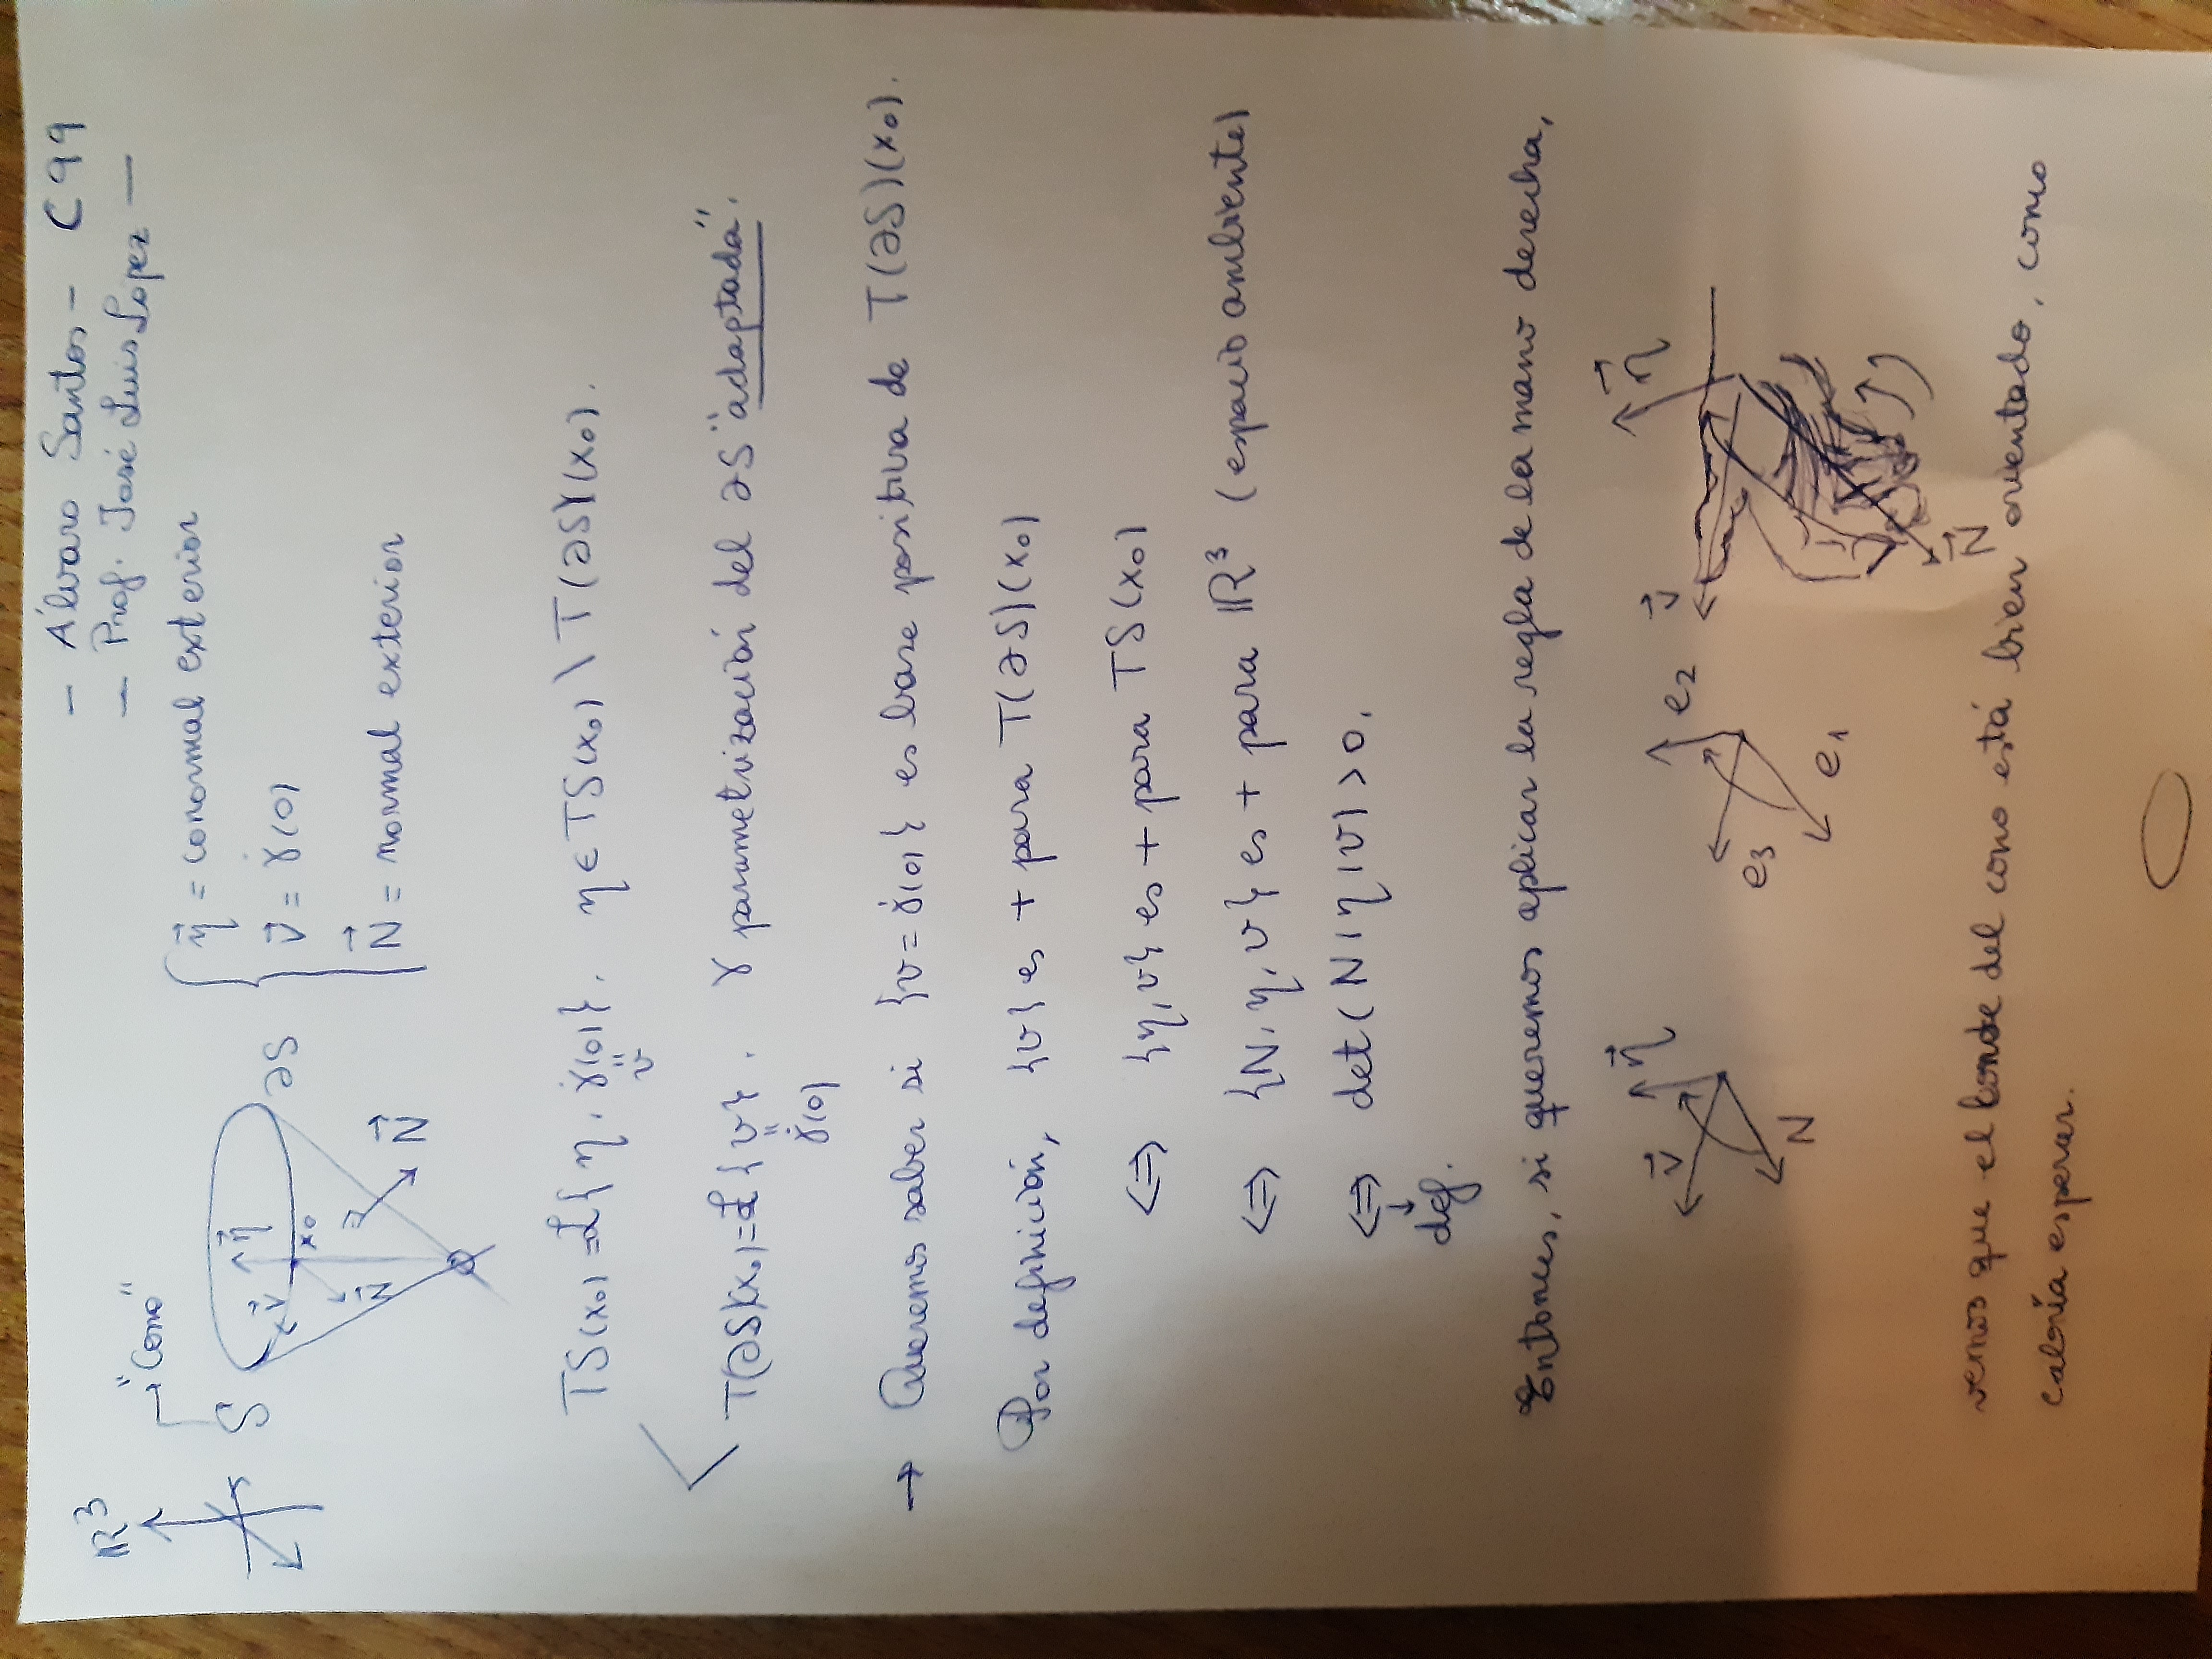 - Álvaro Santos - C99
- Prof. José Luis López -
ℝ³
→ "Cono"
S
∂S
η⃗
x₀
v⃗
N⃗
N⃗
η⃗ = conormal exterior
v⃗ = γ̇(0)
N⃗ = normal exterior
TS(x₀) = ℒ{η, γ̇(0)}. η ∈ TS(x₀) \ T(∂S)(x₀).
"
v
T(∂S)(x₀) = ℒ{v}. γ parametrización del ∂S "adaptada".
"
γ̇(0)
→ Queremos saber si {v = γ̇(0)} es base positiva de T(∂S)(x₀).
Por definición, {v} es + para T(∂S)(x₀)
⇔ {η, v} es + para TS(x₀)
⇔ {N, η, v} es + para ℝ³ (espacio ambiente)
⇔ det(N|η|v) > 0.
↓
def.
Entonces, si queremos aplicar la regla de la mano derecha,
v⃗ η⃗ N
e₃ e₂ e₁
v⃗ η⃗ N⃗
vemos que el borde del cono está bien orientado, como
cabría esperar.